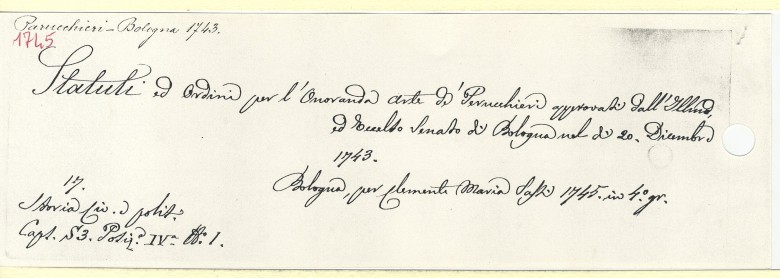 Parucchieri - Bologna 1743.
1745
Statuti ed Ordini per l'Onoranda Arte de' Perucchieri approvati dall'Illmo,
ed Eccelso Senato di Bologna nel di 20. Dicembre
1743.
Bologna, per Clemente Maria Sassi 1745. in 4.° gr.
17.
Storia Civ. e polit.
Capt. S3. IV.ª N.° 1.